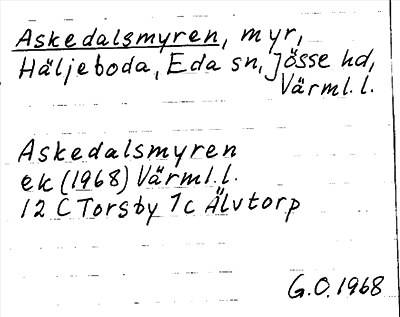 Askedalsmyren, myr,
Häljeboda, Eda sn, Jösse hd,
Värml. l.
Askedalsmyren
ek (1968) Värml. l.
12 C Torsby 1c Älvtorp
G.O. 1968